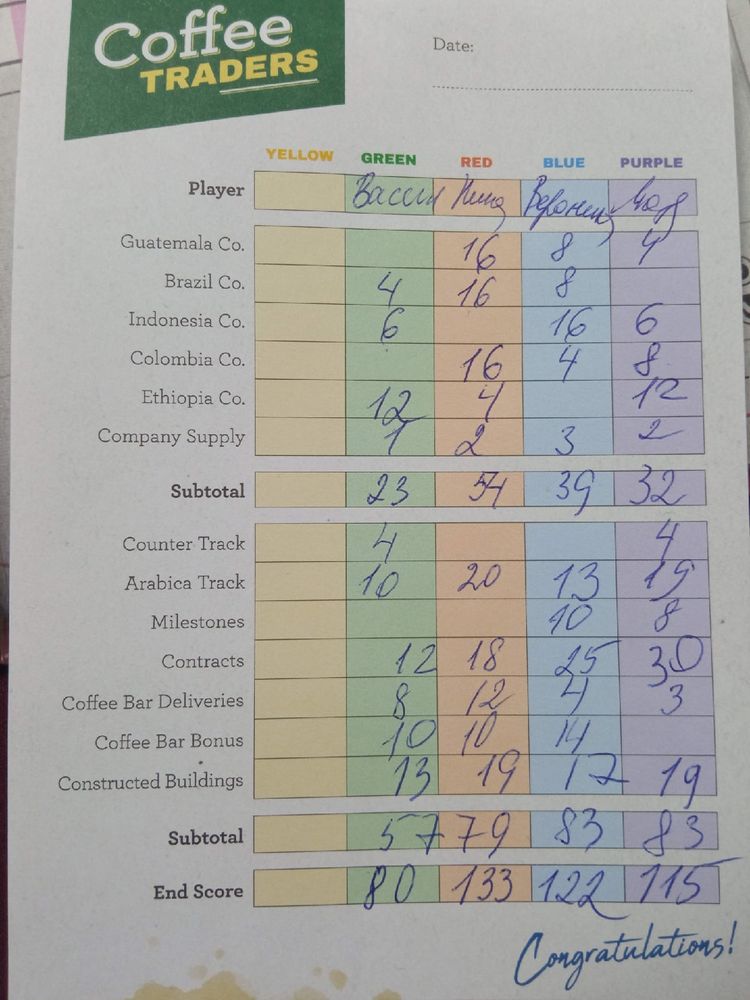 Coffee
TRADERS
Date:
YELLOW GREEN RED BLUE PURPLE
Player Васил Нина
Guatemala Co. 16 8 4
Brazil Co. 4 16 8
Indonesia Co. 6 16 6
Colombia Co. 16 4 8
Ethiopia Co. 12 4 12
Company Supply 1 2 3 2
Subtotal 23 54 39 32
Counter Track 4 4
Arabica Track 10 20 13 19
Milestones 10 8
Contracts 12 18 25 30
Coffee Bar Deliveries 8 12 4 3
Coffee Bar Bonus 10 10 14
Constructed Buildings 13 19 17 19
Subtotal 57 79 83 83
End Score 80 133 122 115
Congratulations!